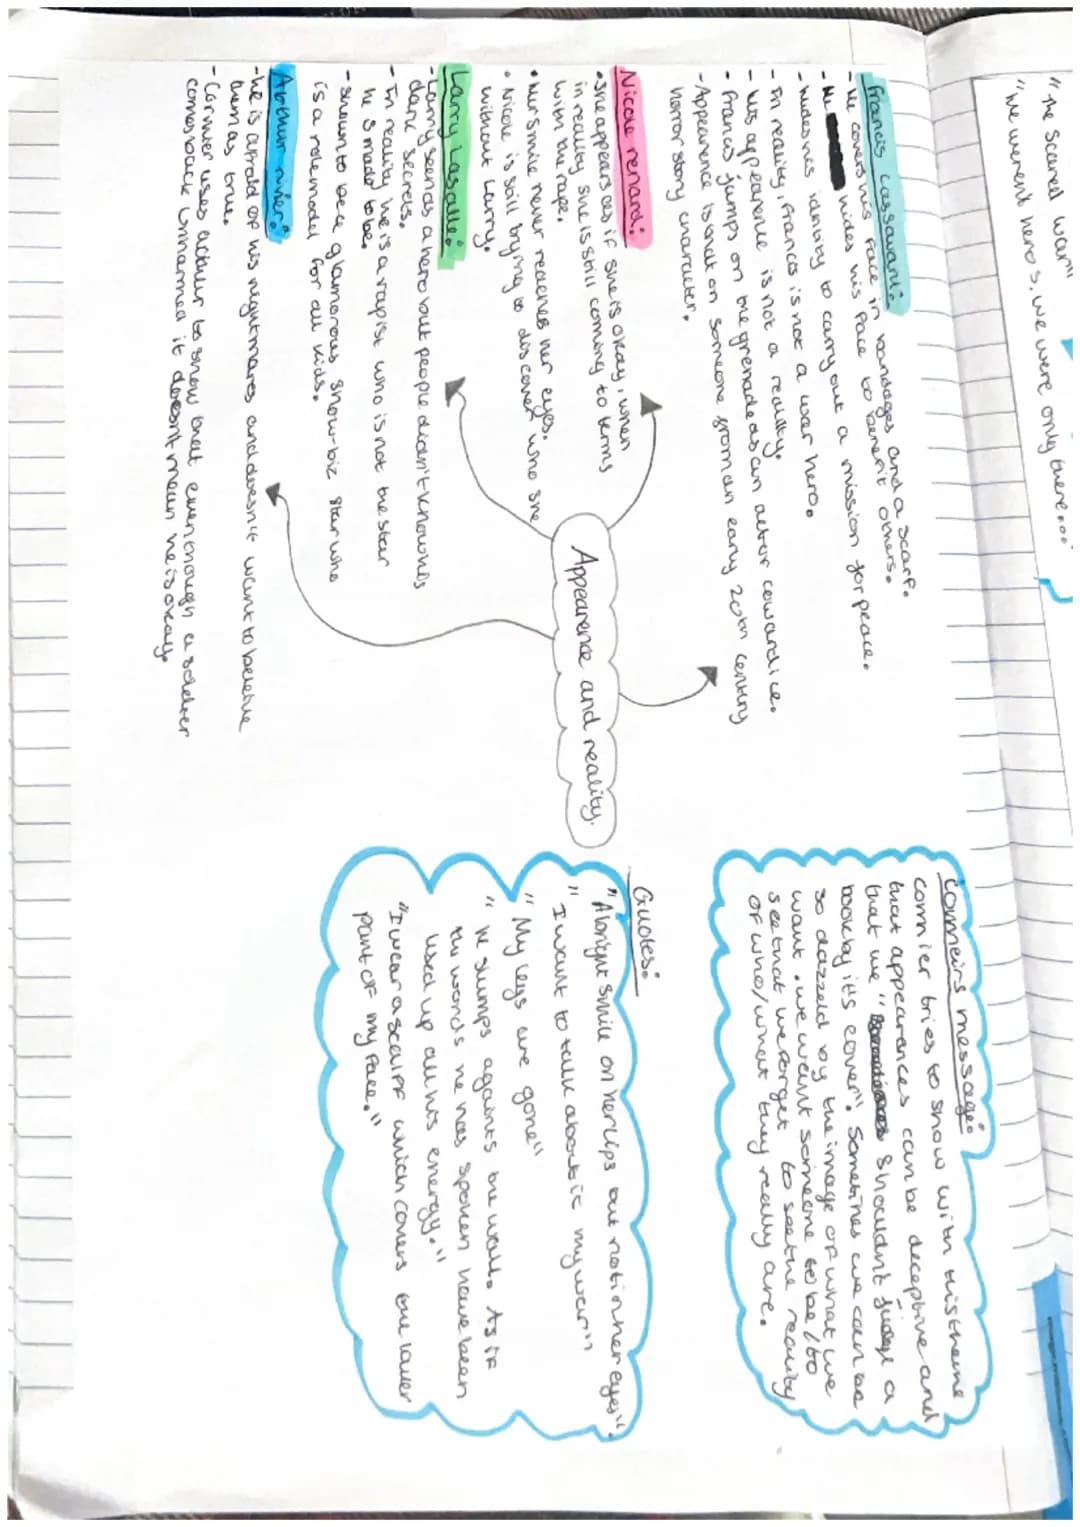 "the scared war"
"we weren't hero's, we were only there..."
Francis cassavant:
- He covers his face in bandages and a scarf.
- He hides his face to benefit others.
- hides his idntity to carry out a mission for peace.
- In reality, Francis is not a war hero.
- His appearence is not a reality.
- Francis jumps on the grenade as an act or cowardice.
- Appearence is that on someone from an early 20th century
horror story character.
Nicole renard:
• She appears as if she is okay, when
in reality she is still coming to terms
with the rape.
• Her smile never reaches her eyes.
• Nicole is still trying to discover who she
without Larry.
Larry Lasalle:
- Larry seen as a hero but people didn't know his
dark secrets.
- In reality he is a rapist who is not the star
he s made to be.
- shown to be a glamorous show-biz star who
is a rolemodel for all kids.
Arthur rivier:
- he is afraid of his nightmares and doesn't want to beleive
them as true.
- Cormier uses arthur to show that even though a soldier
comes back unharmed it doesn't mean he is okay.
Appearence and reality.
Cormeirs message:
cormier tries to show with this theme
that appearances can be deceptive and
that we " shouldn't judge a
book by it's cover". Sometimes we can be
so dazzeld by the image of what we
want. we want someone to be/to
see that we forget to see the reality
of who/what they really are.
Quotes:
"A bright smile on her lips but not in her eyes".
"I want to talk about it my war"
"My legs are gone"
"he slumps againts the wall. As if
the words he has spoken have been
used up all his energy."
"I wear a scarf which covers the lower
part of my face."